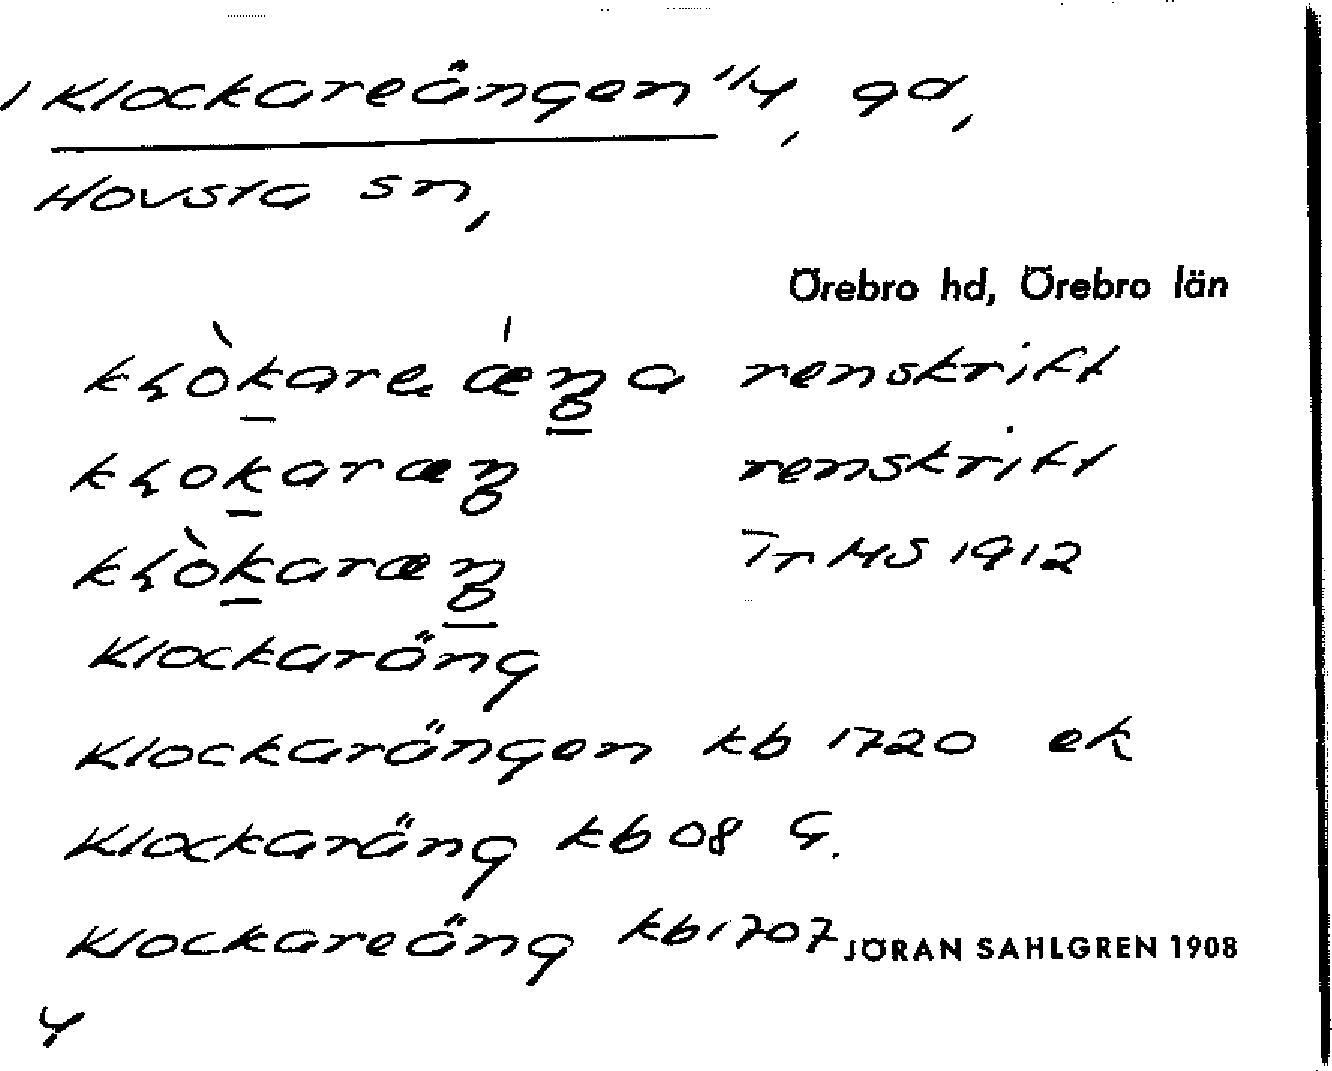 1 Klockareängen 1/4, gd,
Hovsta sn,
Örebro hd, Örebro län
kɭòkare ǽŋa renskrift
kɭokaræŋ renskrift
kɭòkaræŋ Tr MS 1912
Klockaräng
Klockarängen kb 1720 ek
Klockaräng kb 08 G.
Klockareäng kb 1707 JÖRAN SAHLGREN 1908
4